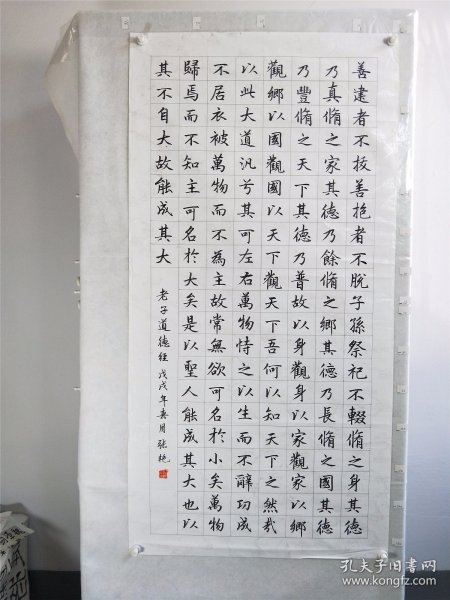 善建者不拔善抱者不脫子孫祭祀不輟脩之身其德
乃真脩之家其德乃餘脩之鄉其德乃長脩之國其德
乃豐脩之天下其德乃普故以身觀身以家觀家以鄉
觀鄉以國觀國以天下觀天下吾何以知天下之然哉
以此大道汎兮其可左右萬物恃之以生而不辭功成
不居衣被萬物而不為主故常無欲可名於小矣萬物
歸焉而不知主可名於大矣是以聖人能成其大也以
其不自大故能成其大
老子道德經 戊戌年春月 張艳
孔夫子旧书网
www.kongfz.com